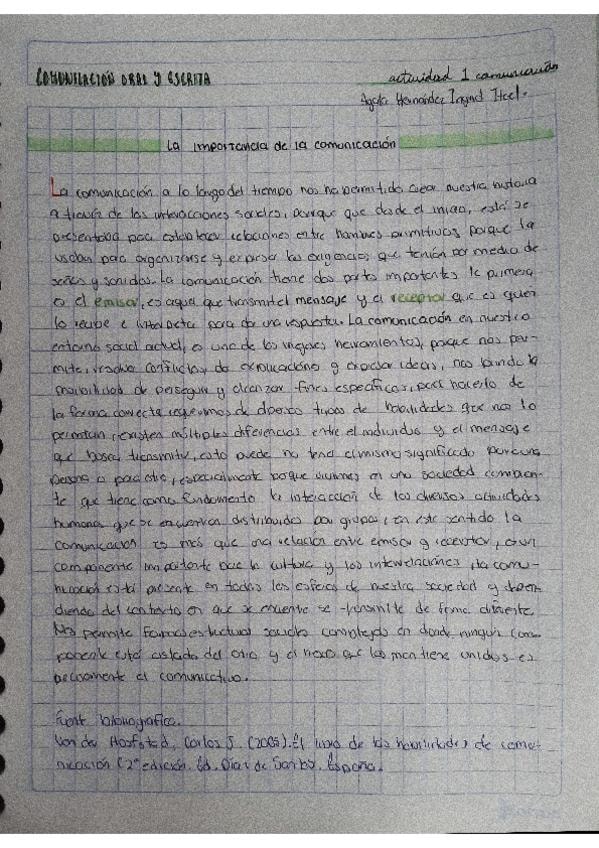 COMUNICACIÓN ORAL Y ESCRITA
actividad 1 comunicación
Hernández Ingrid Itzel.
La importancia de la comunicación
La comunicación a lo largo del tiempo nos ha permitido crear nuestra historia
a través de las interacciones sociales, aunque que desde el inicio, está se
presentaba para establecer relaciones entre hombres primitivos porque la
usaban para organizarse y expresar las exigencias que tenían por medio de
señas y sonidos. La comunicación tiene dos partes importantes la primera
es el emisor, es aquel que transmite el mensaje y el receptor que es quien
lo recibe e interacta para dar una respuesta. La comunicación en nuestro
entorno social actual, es una de las mejores herramientas, porque nos per-
mite, resolver conflictos, dar explicaciones y expresar ideas, nos brinda la
posibilidad de perseguir y alcanzar fines específicos, para hacerlo de
la forma correcta requerimos de diversos tipos de habilidades que nos lo
permitan, existen múltiples diferencias entre el individuo y el mensaje
que busca transmitir, esto puede no tener el mismo significado para una
persona o para otra, especialmente porque vivimos en una sociedad
te que tiene como fundamento la interacción de las diversas actividades
humanas que se encuentran distribuidas por grupos, en este sentido la
comunicación es más que una relación entre emisor y receptor, es un
componente importante para la cultura y las interrelaciones, la comu-
nicación está presente en todas las esferas de nuestra sociedad y depen-
diendo del contexto en que se encuentre se transmite de forma diferente.
Nos permite formar estructuras sociales complejas en donde ningún com-
ponente está aislado del otro y el nexo que los mantiene unidos es
precisamente el comunicativo.
Fuente bibliografica.
Van der Hofstadt, Carlos J. (2005). El libro de las habilidades de comu-
nicación (2ª edición. Ed. Díaz de Santos. España.